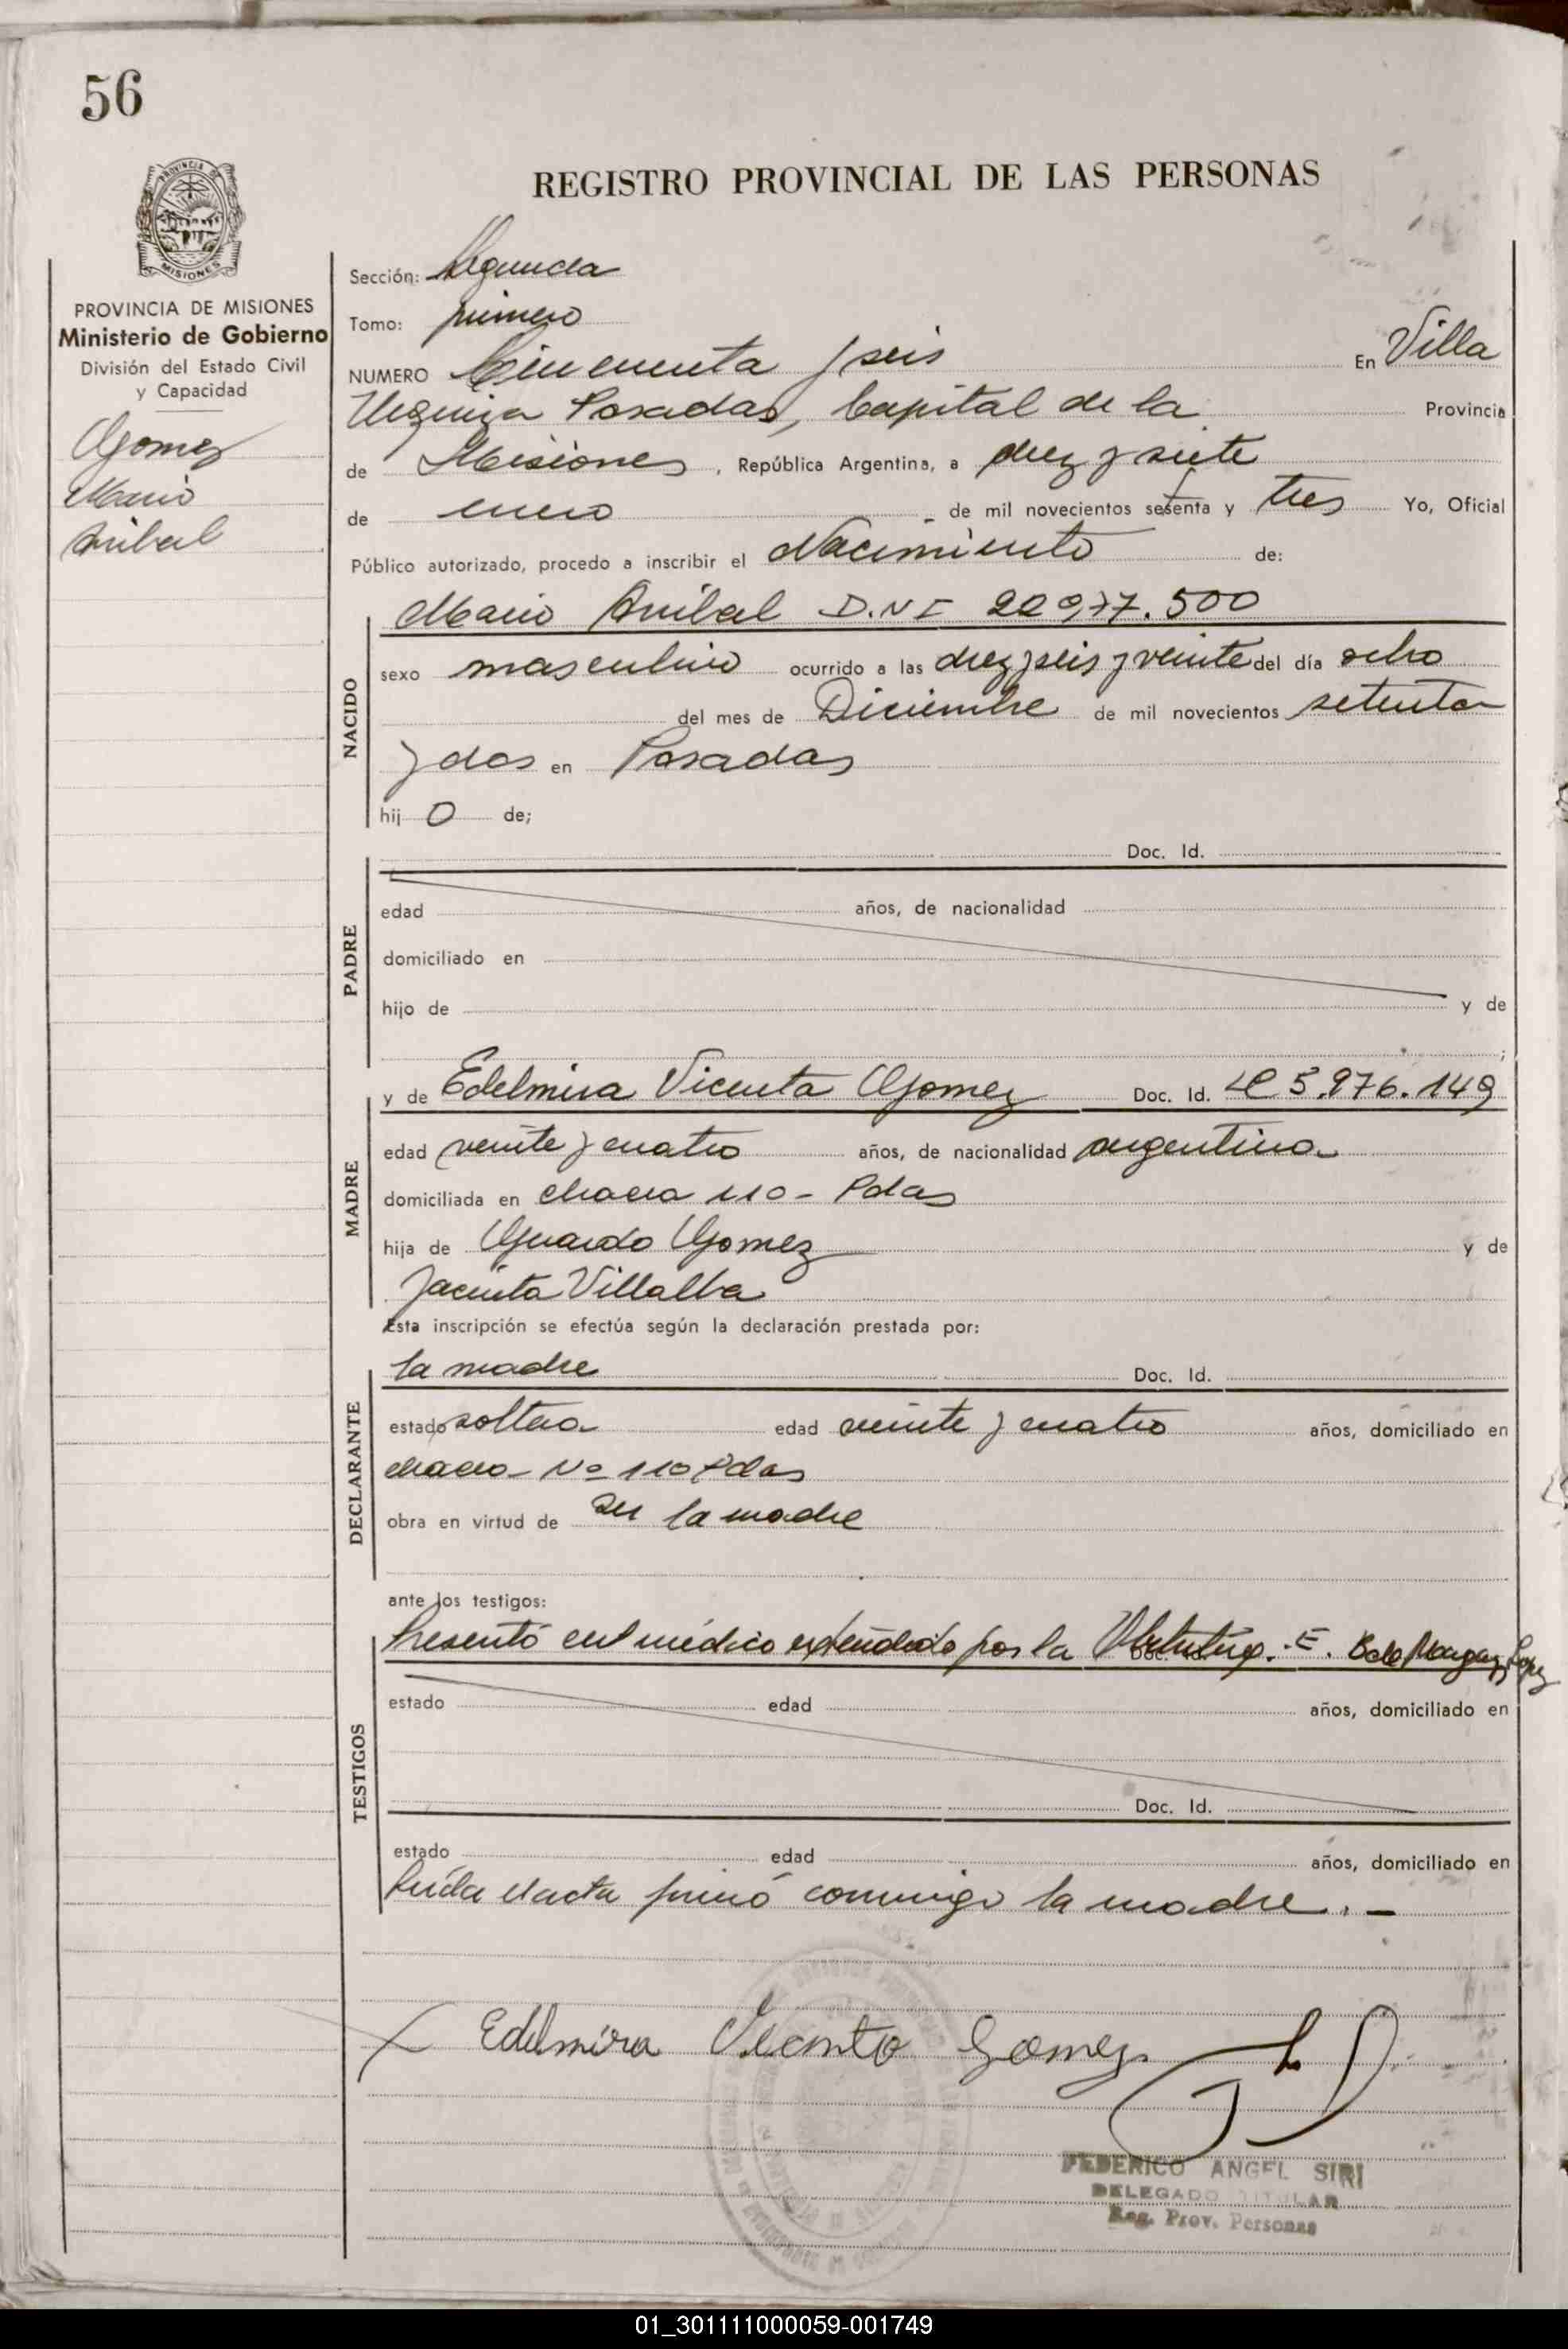 56
REGISTRO PROVINCIAL DE LAS PERSONAS
MISIONES
PROVINCIA DE MISIONES
Ministerio de Gobierno
División del Estado Civil
y Capacidad
Gomez
Mario
Anibal
Sección: Segunda
Tomo: primero
NUMERO Cincuenta y seis En Villa
Urquiza Posadas, Capital de la Provincia
de Misiones, República Argentina, a diez y siete
de enero de mil novecientos setenta y tres Yo, Oficial
Público autorizado, procedo a inscribir el Nacimiento de:
NACIDO
Mario Anibal D.N I 22 977.500
sexo masculino ocurrido a las diez y seis y veinte del día ocho
del mes de Diciembre de mil novecientos setenta
y dos en Posadas
hij o de;
PADRE
Doc. Id.
edad años, de nacionalidad
domiciliado en
hijo de y de
;
MADRE
y de Edelmira Vicenta Gomez Doc. Id. LC 5.976.149
edad veinte y cuatro años, de nacionalidad argentina
domiciliada en chacra 110 - Pdas
hija de Gomez y de
Jacinta Villalba
Esta inscripción se efectúa según la declaración prestada por:
DECLARANTE
la madre Doc. Id.
estado soltera edad veinte y cuatro años, domiciliado en
chacra Nº 110 Pdas
obra en virtud de ser la madre
ante los testigos:
TESTIGOS
Presentó cert médico extendido por la E.
estado edad años, domiciliado en
Doc. Id.
estado edad años, domiciliado en
Leída el acta firmó conmigo la madre. -
Edelmira Vicenta Gomez
FEDERICO ANGEL SIRI
DELEGADO TITULAR
Reg. Prov. Personas
01_301111000059-001749